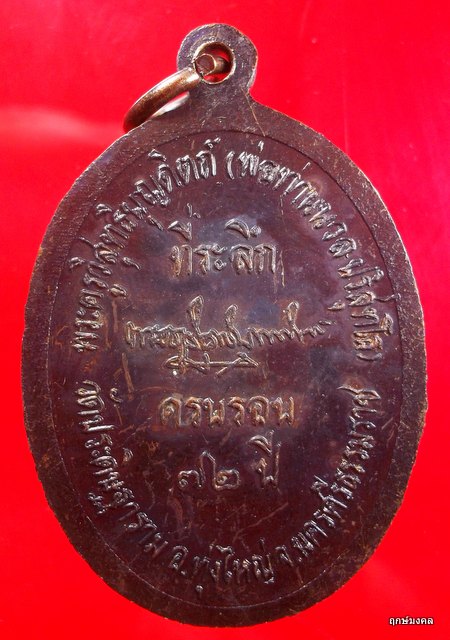 พระครูวิสุทธิบุญดิตถ์ (พ่อท่านนวล ปริสุทโธ)
ที่ระลึก
ครบรอบ
๗๒ ปี
วัดประดิษฐาราม อ.ทุ่งใหญ่ จ.นครศรีธรรมราช
ฤกษ์มงคล